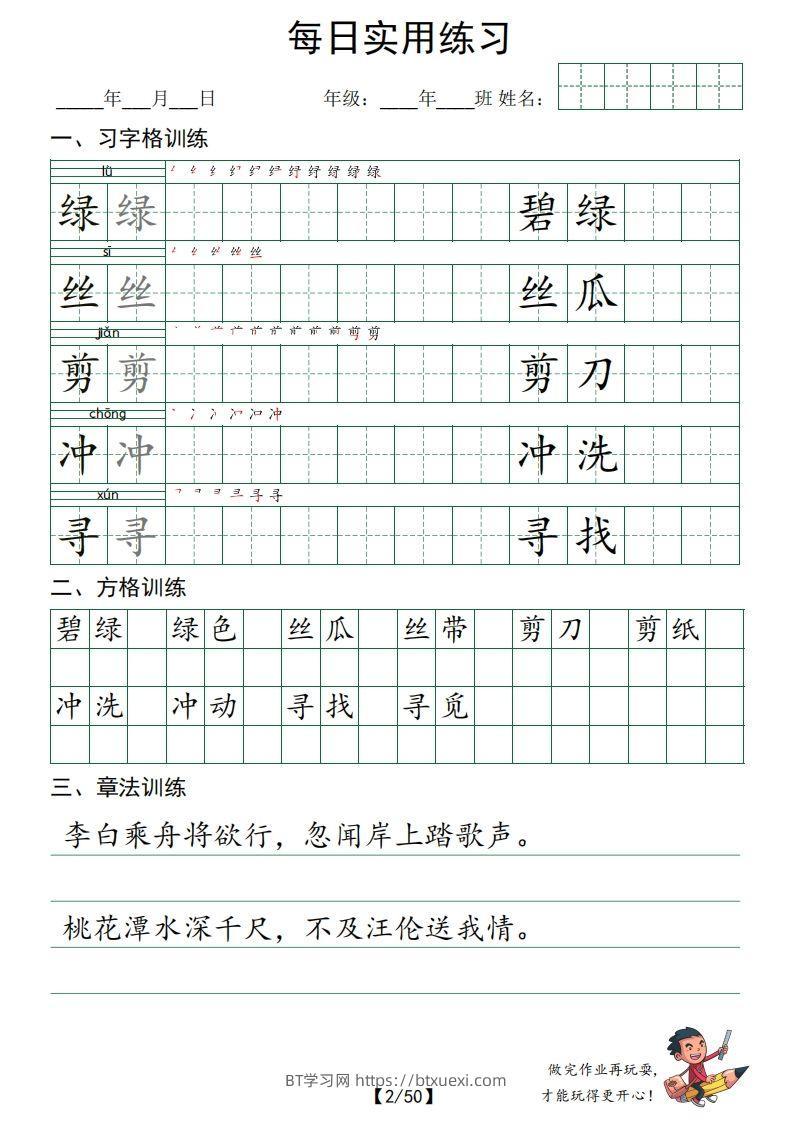 每日实用练习
_____年___月___日 年级：____年____班 姓名：
一、习字格训练
lǜ
绿 绿 碧 绿
sī
丝 丝 丝 瓜
jiǎn
剪 剪 剪 刀
chōng
冲 冲 冲 洗
xún
寻 寻 寻 找
二、方格训练
碧绿 绿色 丝瓜 丝带 剪刀 剪纸
冲洗 冲动 寻找 寻觅
三、章法训练
李白乘舟将欲行，忽闻岸上踏歌声。
桃花潭水深千尺，不及汪伦送我情。
做完作业再玩耍，
才能玩得更开心！
BT学习网 https://btxuexi.com
【2/50】